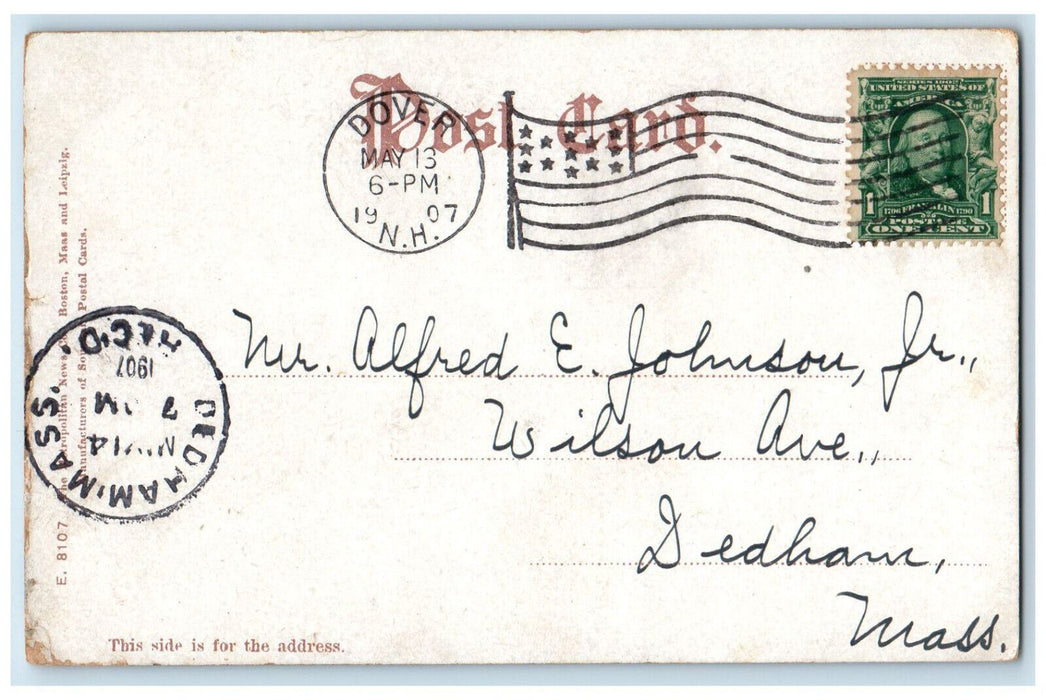 Post Card.
DOVER
MAY 13
6-PM
1907
N.H.
SERIES 1902
UNITED STATES OF
AMERICA
1 1706 FRANKLIN 1790 1
POSTAGE
ONE CENT
Mr. Alfred E. Johnson, Jr.,
Wilson Ave.,
Dedham,
Mass.
DEDHAM, MASS.
MY 14
7 M
1907
REC'D.
E. 8107 The Metropolitan News Boston, Mass and Leipzig.
Manufacturers of Postal Cards.
This side is for the address.